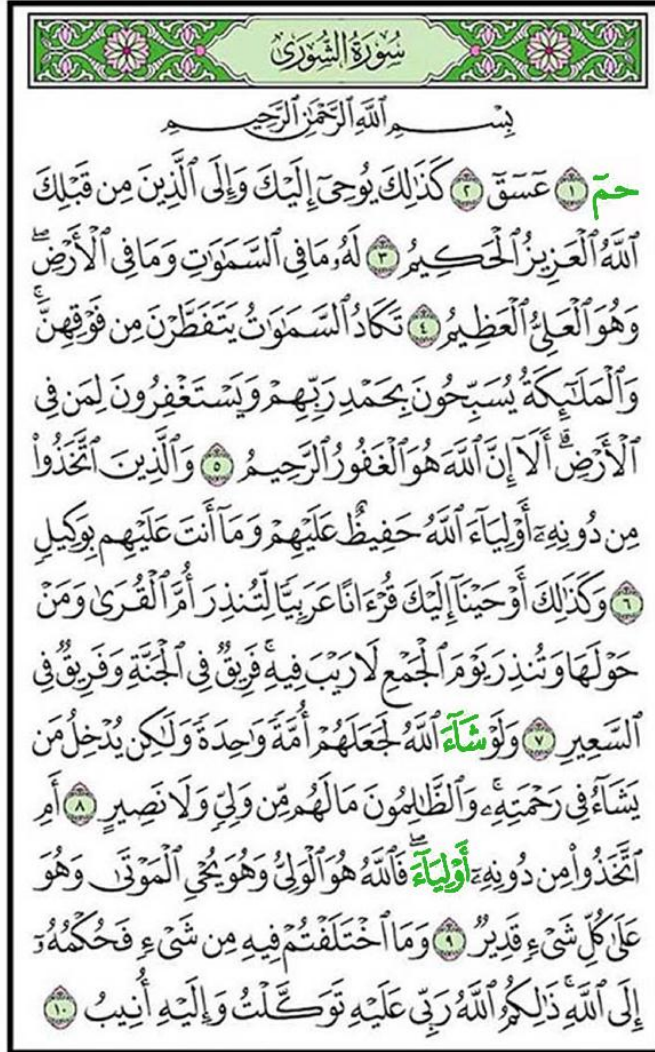 سُورَةُ الشُّورَىٰ
بِسْمِ ٱللَّهِ ٱلرَّحْمَٰنِ ٱلرَّحِيمِ
حمٓ ١ عٓسٓقٓ ٢ كَذَٰلِكَ يُوحِىٓ إِلَيْكَ وَإِلَى ٱلَّذِينَ مِن قَبْلِكَ
ٱللَّهُ ٱلْعَزِيزُ ٱلْحَكِيمُ ٣ لَهُۥ مَا فِى ٱلسَّمَٰوَٰتِ وَمَا فِى ٱلْأَرْضِ ۖ
وَهُوَ ٱلْعَلِىُّ ٱلْعَظِيمُ ٤ تَكَادُ ٱلسَّمَٰوَٰتُ يَتَفَطَّرْنَ مِن فَوْقِهِنَّ ۚ
وَٱلْمَلَٰٓئِكَةُ يُسَبِّحُونَ بِحَمْدِ رَبِّهِمْ وَيَسْتَغْفِرُونَ لِمَن فِى
ٱلْأَرْضِ ۗ أَلَآ إِنَّ ٱللَّهَ هُوَ ٱلْغَفُورُ ٱلرَّحِيمُ ٥ وَٱلَّذِينَ ٱتَّخَذُوا۟
مِن دُونِهِۦٓ أَوْلِيَآءَ ٱللَّهُ حَفِيظٌ عَلَيْهِمْ وَمَآ أَنتَ عَلَيْهِم بِوَكِيلٍ
٦ وَكَذَٰلِكَ أَوْحَيْنَآ إِلَيْكَ قُرْءَانًا عَرَبِيًّا لِّتُنذِرَ أُمَّ ٱلْقُرَىٰ وَمَنْ
حَوْلَهَا وَتُنذِرَ يَوْمَ ٱلْجَمْعِ لَا رَيْبَ فِيهِ ۚ فَرِيقٌ فِى ٱلْجَنَّةِ وَفَرِيقٌ فِى
ٱلسَّعِيرِ ٧ وَلَوْ شَآءَ ٱللَّهُ لَجَعَلَهُمْ أُمَّةً وَٰحِدَةً وَلَٰكِن يُدْخِلُ مَن
يَشَآءُ فِى رَحْمَتِهِۦ ۚ وَٱلظَّٰلِمُونَ مَا لَهُم مِّن وَلِىٍّ وَلَا نَصِيرٍ ٨ أَمِ
ٱتَّخَذُوا۟ مِن دُونِهِۦٓ أَوْلِيَآءَ ۖ فَٱللَّهُ هُوَ ٱلْوَلِىُّ وَهُوَ يُحْىِ ٱلْمَوْتَىٰ وَهُوَ
عَلَىٰ كُلِّ شَىْءٍ قَدِيرٌ ٩ وَمَا ٱخْتَلَفْتُمْ فِيهِ مِن شَىْءٍ فَحُكْمُهُۥٓ
إِلَى ٱللَّهِ ۚ ذَٰلِكُمُ ٱللَّهُ رَبِّى عَلَيْهِ تَوَكَّلْتُ وَإِلَيْهِ أُنِيبُ ١٠